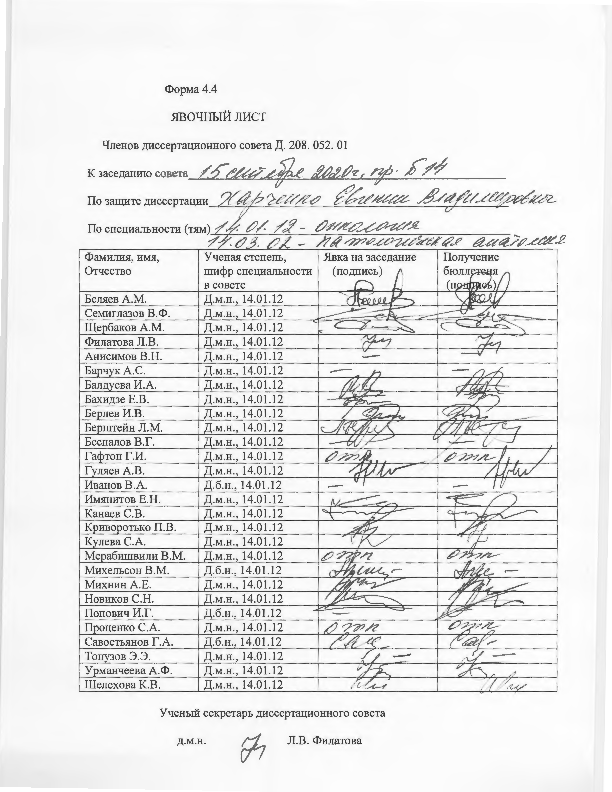 Форма 4.4
ЯВОЧНЫЙ ЛИСТ
Членов диссертационного совета Д. 208. 052. 01
К заседанию совета 15 сентября 2020г, пр. Б 14
По защите диссертации Харченко Евгении Владимировны
По специальности (тям) 14.01.12 - онкология
14.03.02 - патологическая анатомия
Фамилия, имя, Отчество Ученая степень, шифр специальности в совете Явка на заседание (подпись) Получение бюллетеня (подпись)
Беляев А.М. Д.м.н., 14.01.12
Семиглазов В.Ф. Д.м.н., 14.01.12
Щербаков А.М. Д.м.н., 14.01.12
Филатова Л.В. Д.м.н., 14.01.12
Анисимов В.Н. Д.м.н., 14.01.12 — —
Барчук А.С. Д.м.н., 14.01.12 — —
Балдуева И.А. Д.м.н., 14.01.12
Бахидзе Е.В. Д.м.н., 14.01.12
Берлев И.В. Д.м.н., 14.01.12
Берштейн Л.М. Д.м.н., 14.01.12
Беспалов В.Г. Д.м.н., 14.01.12
Гафтон Г.И. Д.м.н., 14.01.12 отп отп
Гуляев А.В. Д.м.н., 14.01.12
Иванов В.А. Д.б.н., 14.01.12 — —
Имянитов Е.Н. Д.м.н., 14.01.12
Канаев С.В. Д.м.н., 14.01.12
Криворотько П.В. Д.м.н., 14.01.12
Кулева С.А. Д.м.н., 14.01.12
Мерабишвили В.М. Д.м.н., 14.01.12 отп отп
Михельсон В.М. Д.б.н., 14.01.12
Михнин А.Е. Д.м.н., 14.01.12
Новиков С.Н. Д.м.н., 14.01.12
Попович И.Г. Д.б.н., 14.01.12
Проценко С.А. Д.м.н., 14.01.12 отп отп
Савостьянов Г.А. Д.б.н., 14.01.12
Топузов Э.Э. Д.м.н., 14.01.12
Урманчеева А.Ф. Д.м.н., 14.01.12
Шелехова К.В. Д.м.н., 14.01.12
Ученый секретарь диссертационного совета
д.м.н. Л.В. Филатова